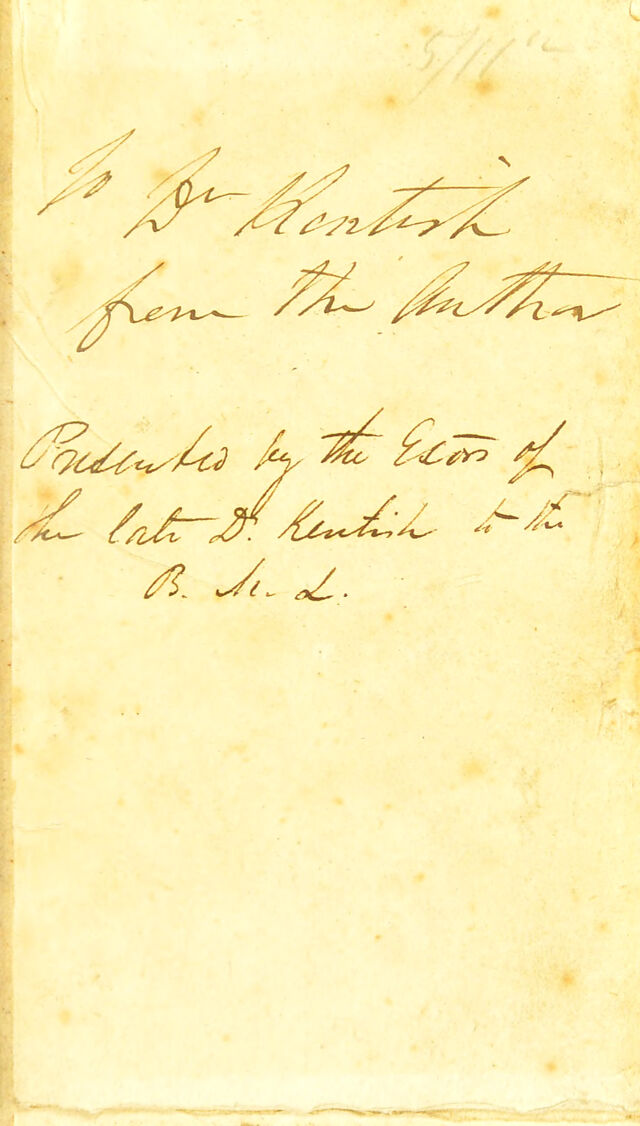 To Dr Kentish
from the Author
Presented by the Exors of
the late Dr. Kentish to the
B. M. L.